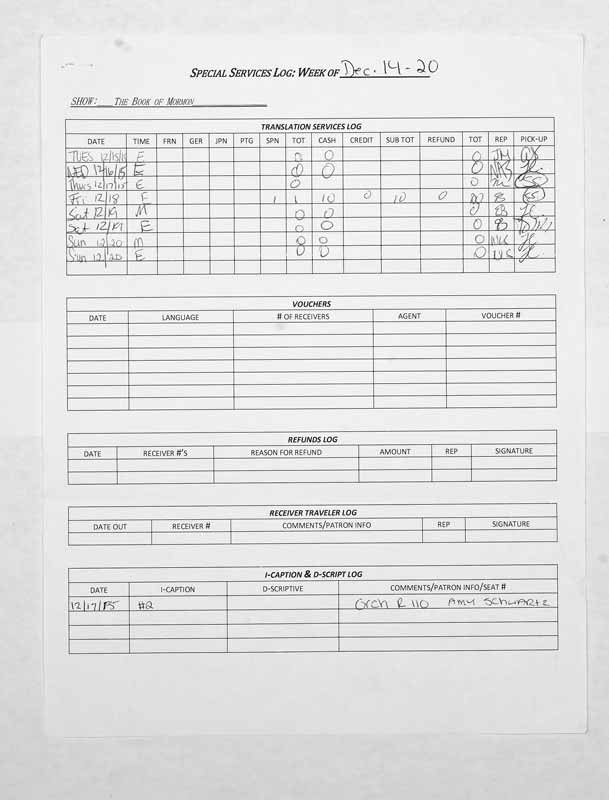 SPECIAL SERVICES LOG: WEEK OF Dec. 14-20
SHOW: THE BOOK OF MORMON
TRANSLATION SERVICES LOG
DATE TIME FRN GER JPN PTG SPN TOT CASH CREDIT SUB TOT REFUND TOT REP PICK-UP
TUES 12/15/15 E 0 0 0 JM
WED 12/16/15 E 0 0 0
Thurs 12/17/15 E 0 0 SS
Fri 12/18 E 1 1 10 0 10 0 B SS
Sat 12/19 M 0 0 0 B
Sat 12/19 E 0 0 0 B
Sun 12/20 M 0 0 0
Sun 12/20 E 0 0 0
VOUCHERS
DATE LANGUAGE # OF RECEIVERS AGENT VOUCHER #
REFUNDS LOG
DATE RECEIVER #'S REASON FOR REFUND AMOUNT REP SIGNATURE
RECEIVER TRAVELER LOG
DATE OUT RECEIVER # COMMENTS/PATRON INFO REP SIGNATURE
I-CAPTION & D-SCRIPT LOG
DATE I-CAPTION D-SCRIPTIVE COMMENTS/PATRON INFO/SEAT #
12/17/15 #2 Orch R 110 AMY SCHWARTZ